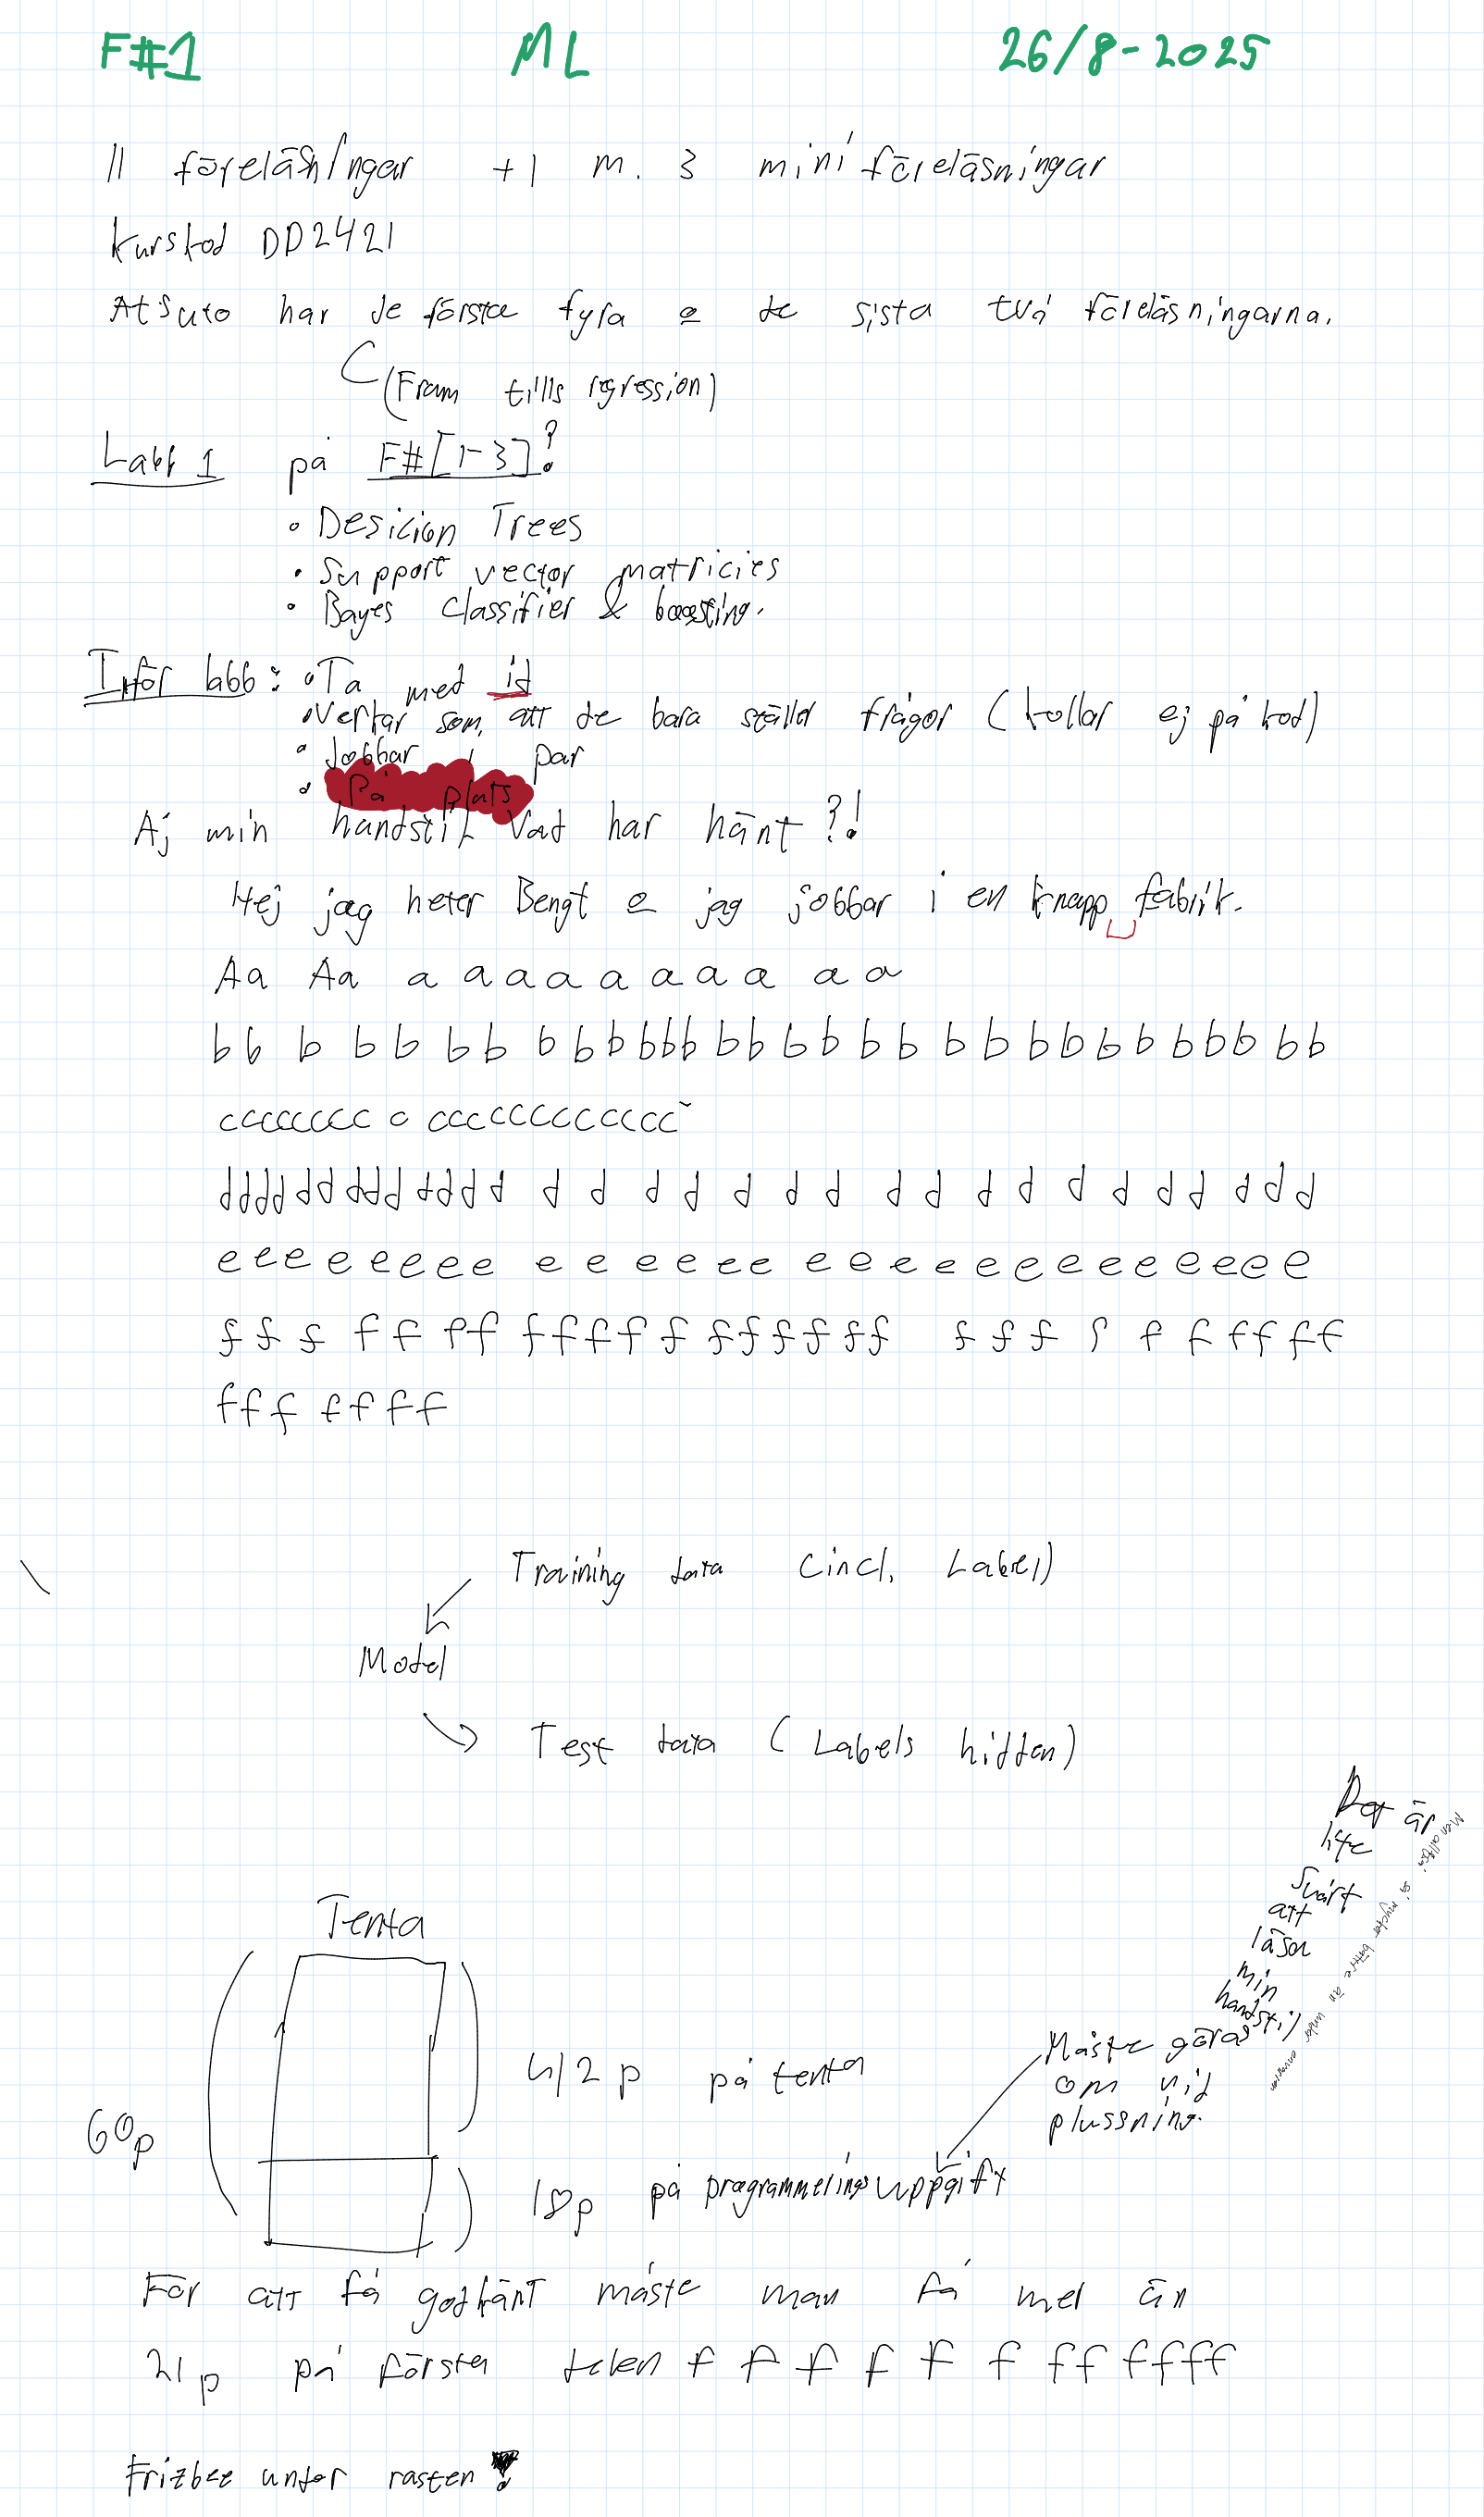 F#1 ML 26/8-2025
11 föreläsningar +1 m. 3 mini föreläsningar
kurskod DD2421
Atsuto har de första fyra & de sista två föreläsningarna.
(Fram tills regression)
Labb 1 på F#[1-3]?
• Desicion Trees
• Support vector matricies
• Bayes classifier & boosting.
Inför labb: • Ta med id
• Verkar som, att de bara ställer frågor (kollar ej på kod)
• Jobbar i par
• På plats
Aj min handstil Vad har hänt?!
Hej jag heter Bengt & jag jobbar i en knapp fabrik.
Aa Aa a a a a a a a a a a
b b b b b b b b b b b b b b b b b b b b b b b b b b b b b b b
ccccccc c cccccccccccc
dddd dd ddd dddd d d d d d d d d d d d d d d d d d d
e e e e e e e e e e e e e e e e e e e e e e e e e e e
f f f f f f f f f f f f f f f f f f f f f f f f f f f f
f f f f f f f
Training data (incl. Label)
Model
Test data (Labels hidden)
Det är
lite
svårt
att
läsa
min
handstil
Men alltså så mycket bättre än under
Tenta
60p
42p på tenta
Måste göras
om vid
plussning.
18p på programmeringsuppgift
För att få godkänt måste man få mer än
21p på första delen f f f f f f f f f f f f
Frizbee under rasten!